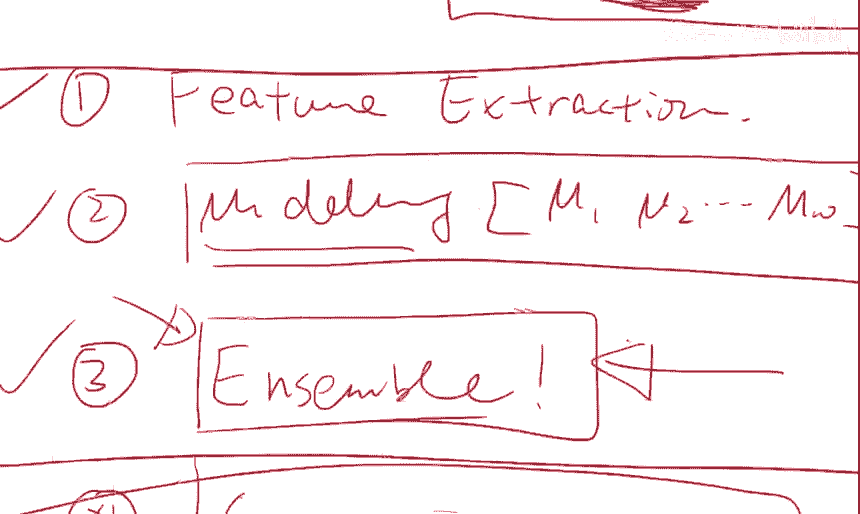 ① Feature Extraction.
② Modeling [ M₁ M₂ ... M₁₀ ]
③ Ensemble!